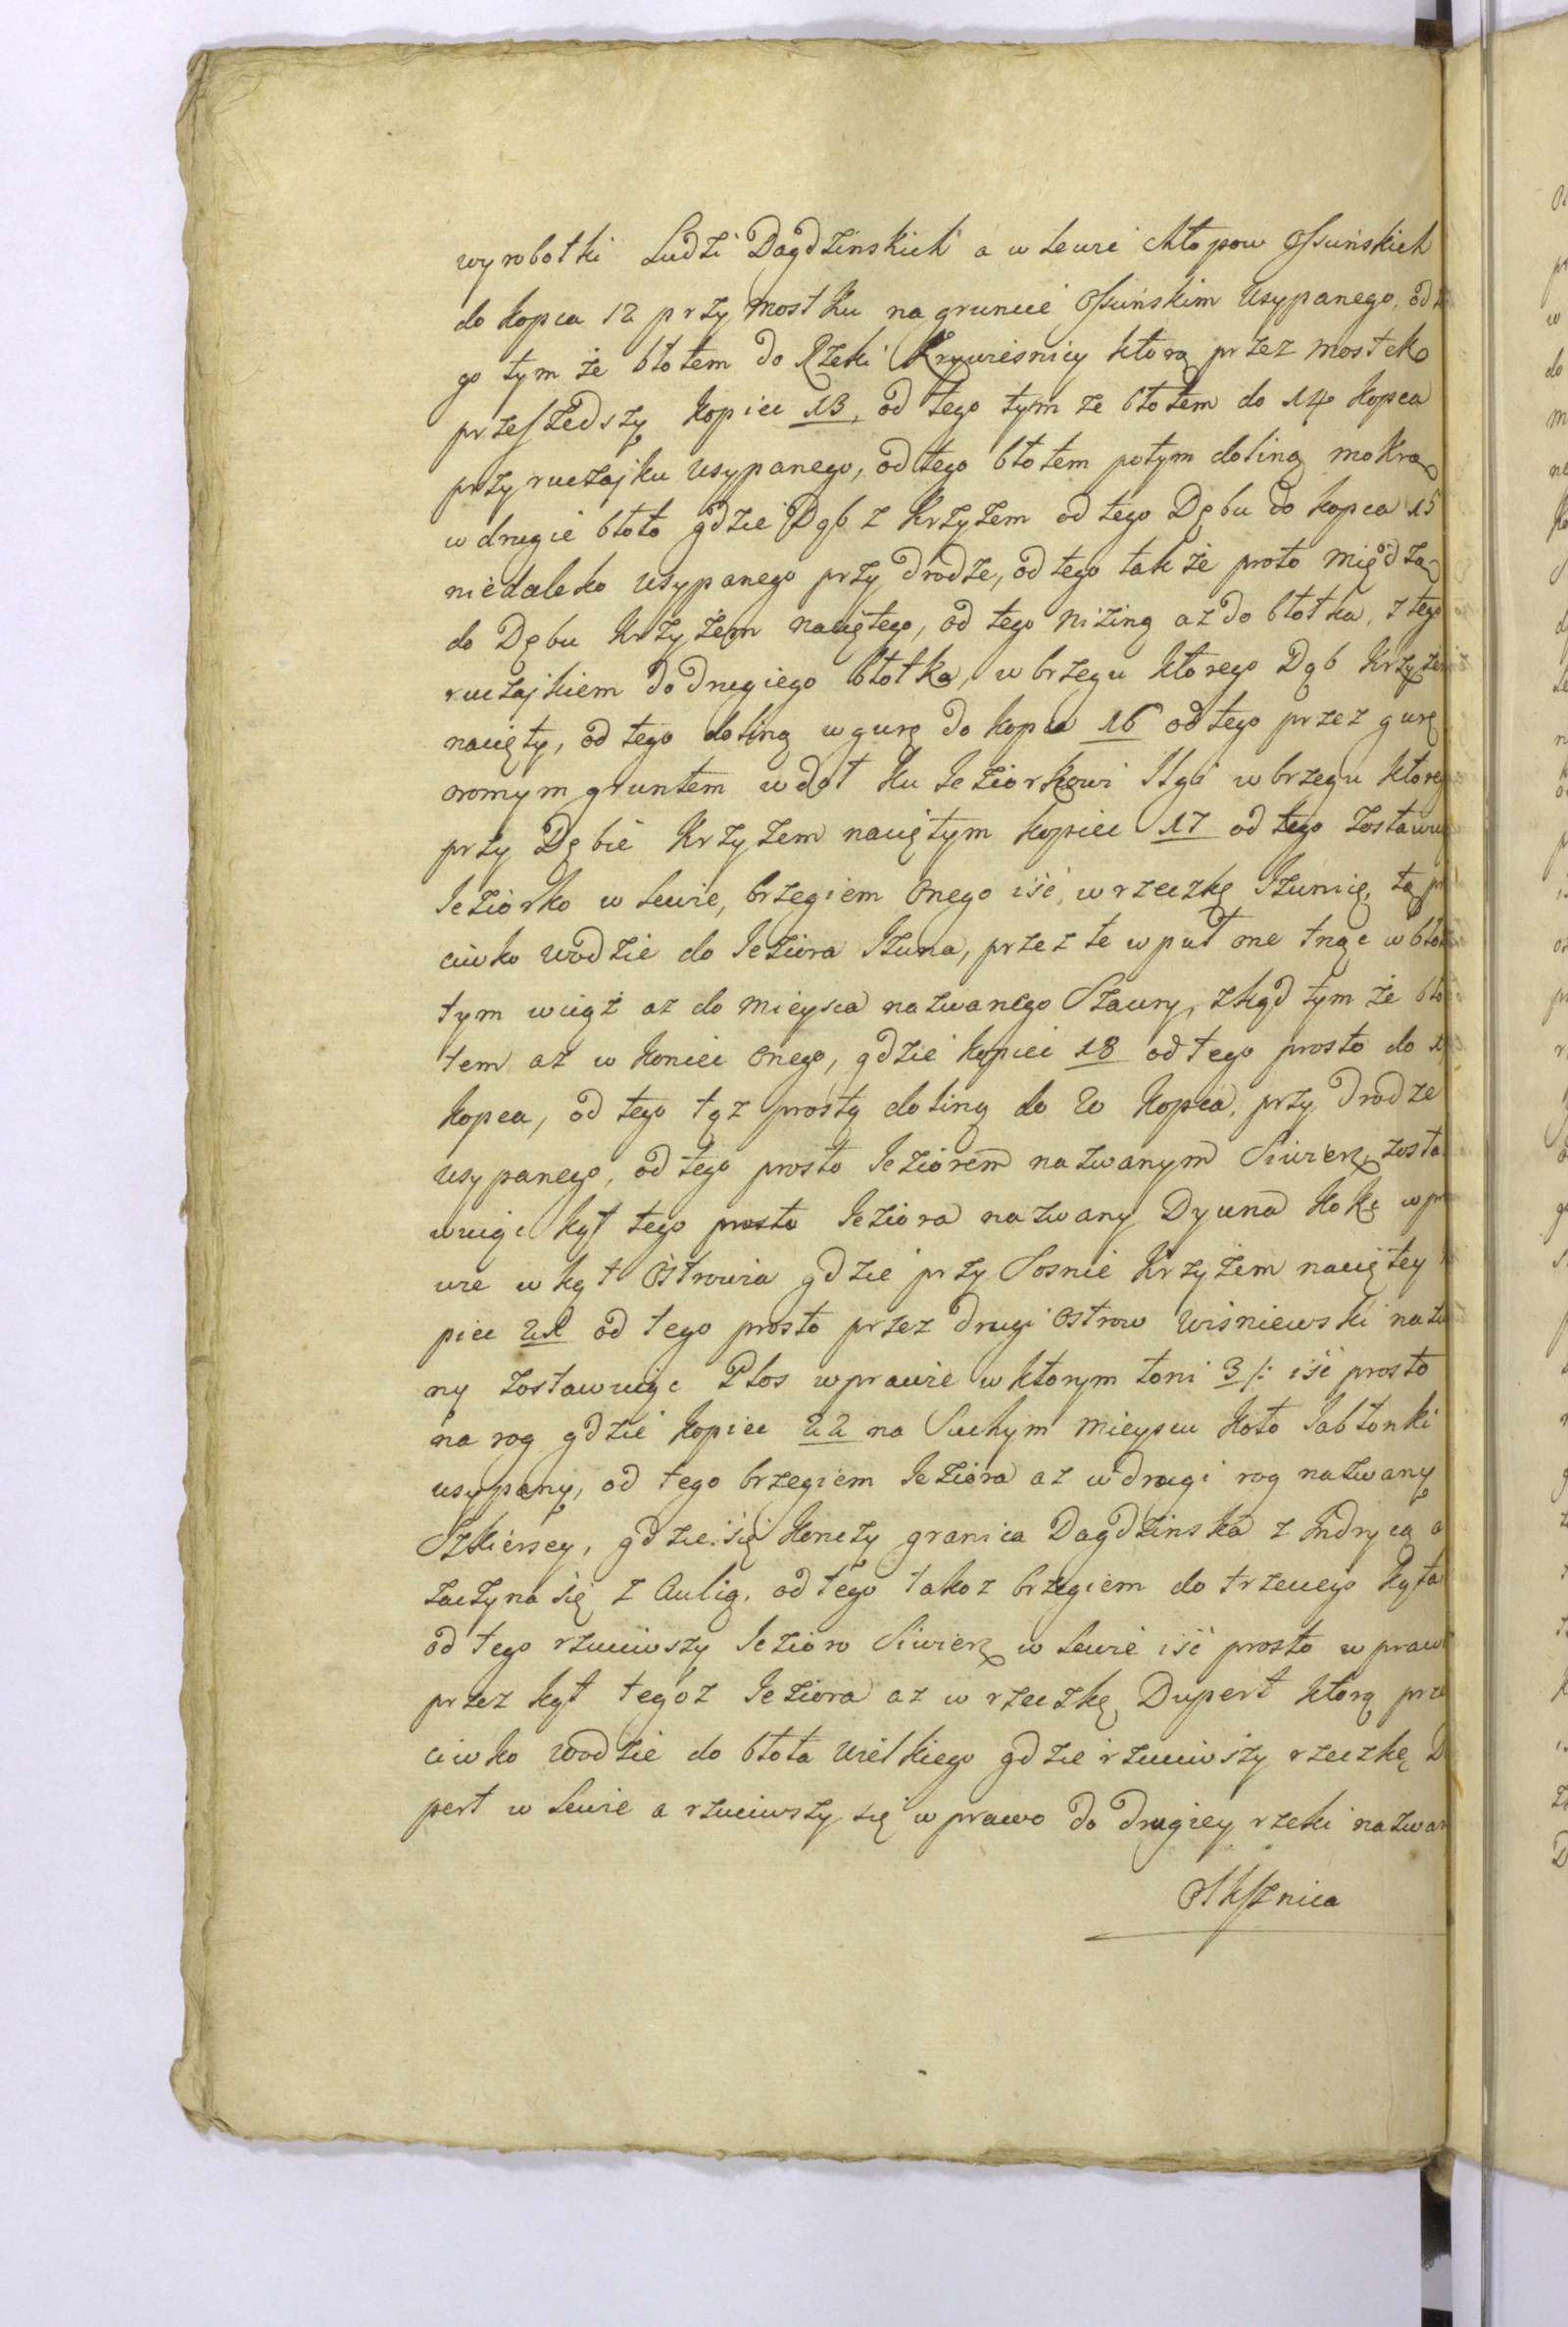 wyrobotki Ludzi Dagdzinskich a w Lewie Chłopow Ossuńskich
do kopca 12 przy mostku na gruncie Ossuńskim Usypanego, od
go tym że błotem do Rzeki Krzywiesnicy ktorą przez mostek
przeszedszy kopiec 13, od tego tym ze błotem do 14 kopca
przy ruczajku Usypanego, od tego błotem potym doliną mokrą
w drugie błoto gdzie Dąb z Krzyżem od tego Dębu do kopca 15
niedaleko usypanego przy drodze, od tego tak że prosto Międzą
do Dębu Krzyżem naciętego, od tego niziną az do błotka, z tego
ruczajkiem do drugiego błotka, w brzegu ktorego Dąb Krzyże
nacięty, od tego doliną w gurę do kopca 16 od tego przez gurę
oromym gruntem w doł ku Jeziorkowi Ilgi w brzegu ktore
przy Dębie Krzyżem naciętym kopiec 17 od tego zostawu
Jeziorko w Lewie, brzegiem Onego iść w rzeczkę Iżunię, tą p
ciwko wodzie do Jeziora Iżuna, przez te w puł one tnąc w bło
tym wciąż az do mieysca nazwanego Szawry, zkąd tym że bło
tem az w koniec onego, gdzie kopiec 18 od tego prosto do 1
kopca, od tego tąz prostą doliną do 20 kopca, przy drodze
usypanego, od tego prosto Jeziorem nazwanym Siwierz zosta
wuiąc kąt tego prosto Jeziora nazwany Dyuna Kokę w pr
wie w kąt Ostrowia gdzie przy Sosnie Krzyżem naciętey
piec 21 od tego prosto przez drugi Ostrow Wiśniewski nazw
ny zostawuiąc Płos w prawie w ktorym toni 3 /: iść prosto
na rog gdzie kopiec 22 na Suchym mieyscu koło Jabłonki
usypany, od tego brzegiem Jeziora az w drugi rog nazwany
Szkiersey, gdzie się konczy granica Dagdzinska z Indrycą a
zaczyna się z Aulią, od tego takoz brzegiem do trzeciego kąta
od tego rzuciwszy Jezioro Siwierz w Lewie iść prosto w praw
przez kąt tegoz Jeziora az w rzeczkę Dupert ktorą prze
ciwko wodzie do błota wielkiego gdzie rzuciwszy rzeczkę D
pert w Lewie a rzuciwszy się w prawo do drugiey rzeki nazwan